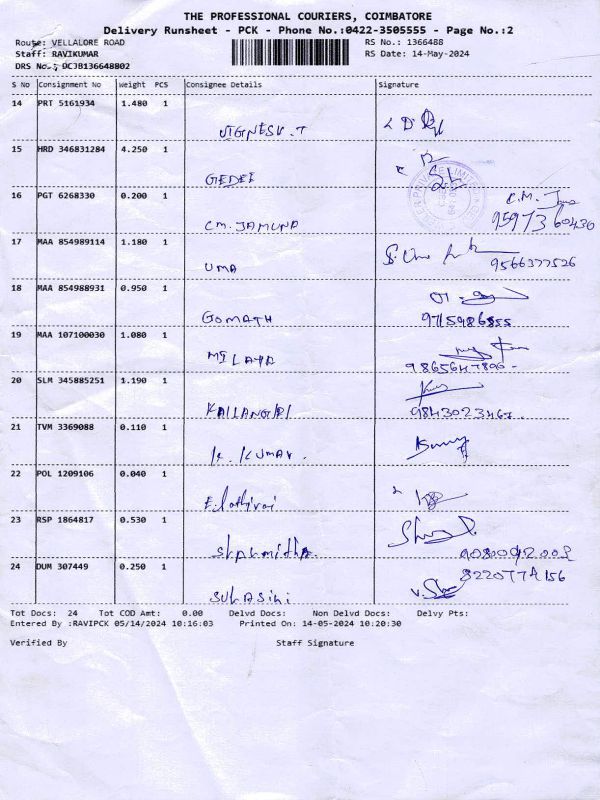 THE PROFESSIONAL COURIERS, COIMBATORE
Delivery Runsheet - PCK - Phone No.:0422-3505555 - Page No.:2
Route: VELLALORE ROAD RS No.: 1366488
Staff: RAVIKUMAR RS Date: 14-May-2024
DRS No.:
S No Consignment No Weight PCS Consignee Details Signature
14 PRT 5161934 1.480 1
VIGNESH.T
15 HRD 346831284 4.250 1
GEDEE
16 PGT 6268330 0.200 1 C.M.
C.M. JAMUNA 9597360430
17 MAA 854989114 1.180 1
UMA 9566377526
18 MAA 854988931 0.950 1
GOMATH 9715986855
19 MAA 107100030 1.080 1
20 SLM 345885251 1.190 1
9843023467
21 TVM 3369088 0.110 1
K. KUMAR.
22 POL 1209106 0.040 1
23 RSP 1864817 0.530 1
24 DUM 307449 0.250 1
SUHASINI
Tot Docs: 24 Tot COD Amt: 0.00 Delvd Docs: Non Delvd Docs: Delvy Pts:
Entered By :RAVIPCK 05/14/2024 10:16:03 Printed On: 14-05-2024 10:20:30
Verified By Staff Signature